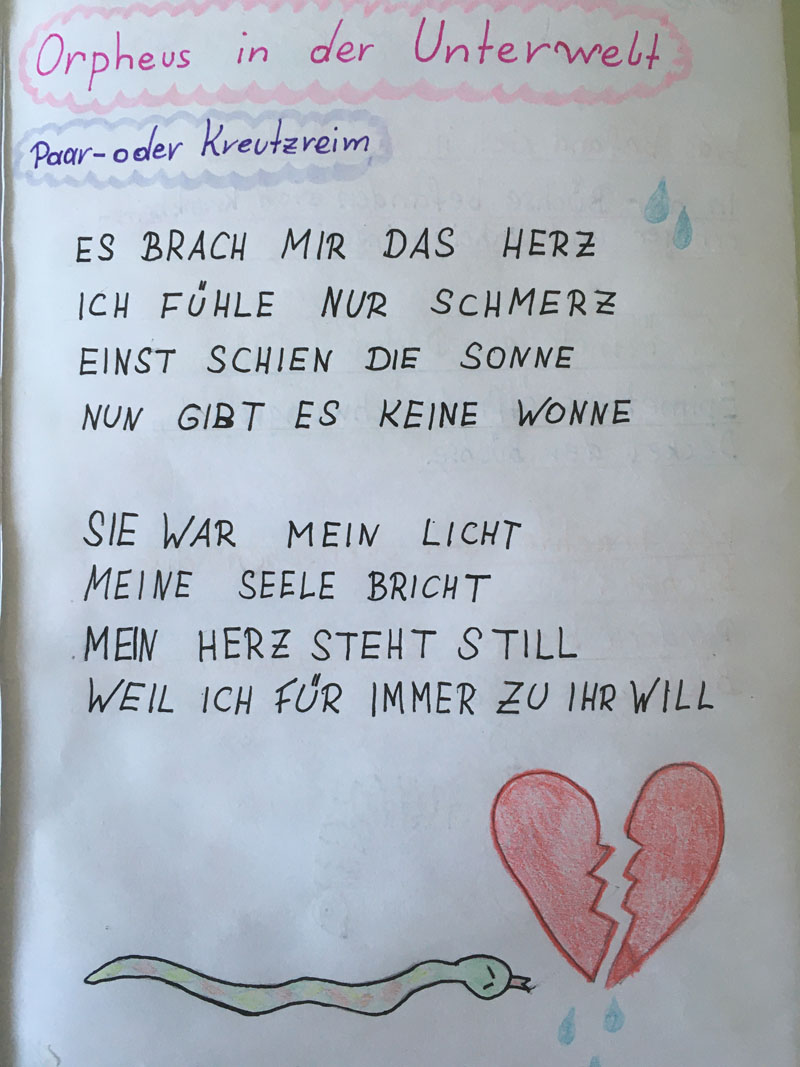 Orpheus in der Unterwelt
Paar-oder Kreutzreim
ES BRACH MIR DAS HERZ
ICH FÜHLE NUR SCHMERZ
EINST SCHIEN DIE SONNE
NUN GIBT ES KEINE WONNE
SIE WAR MEIN LICHT
MEINE SEELE BRICHT
MEIN HERZ STEHT STILL
WEIL ICH FÜR IMMER ZU IHR WILL